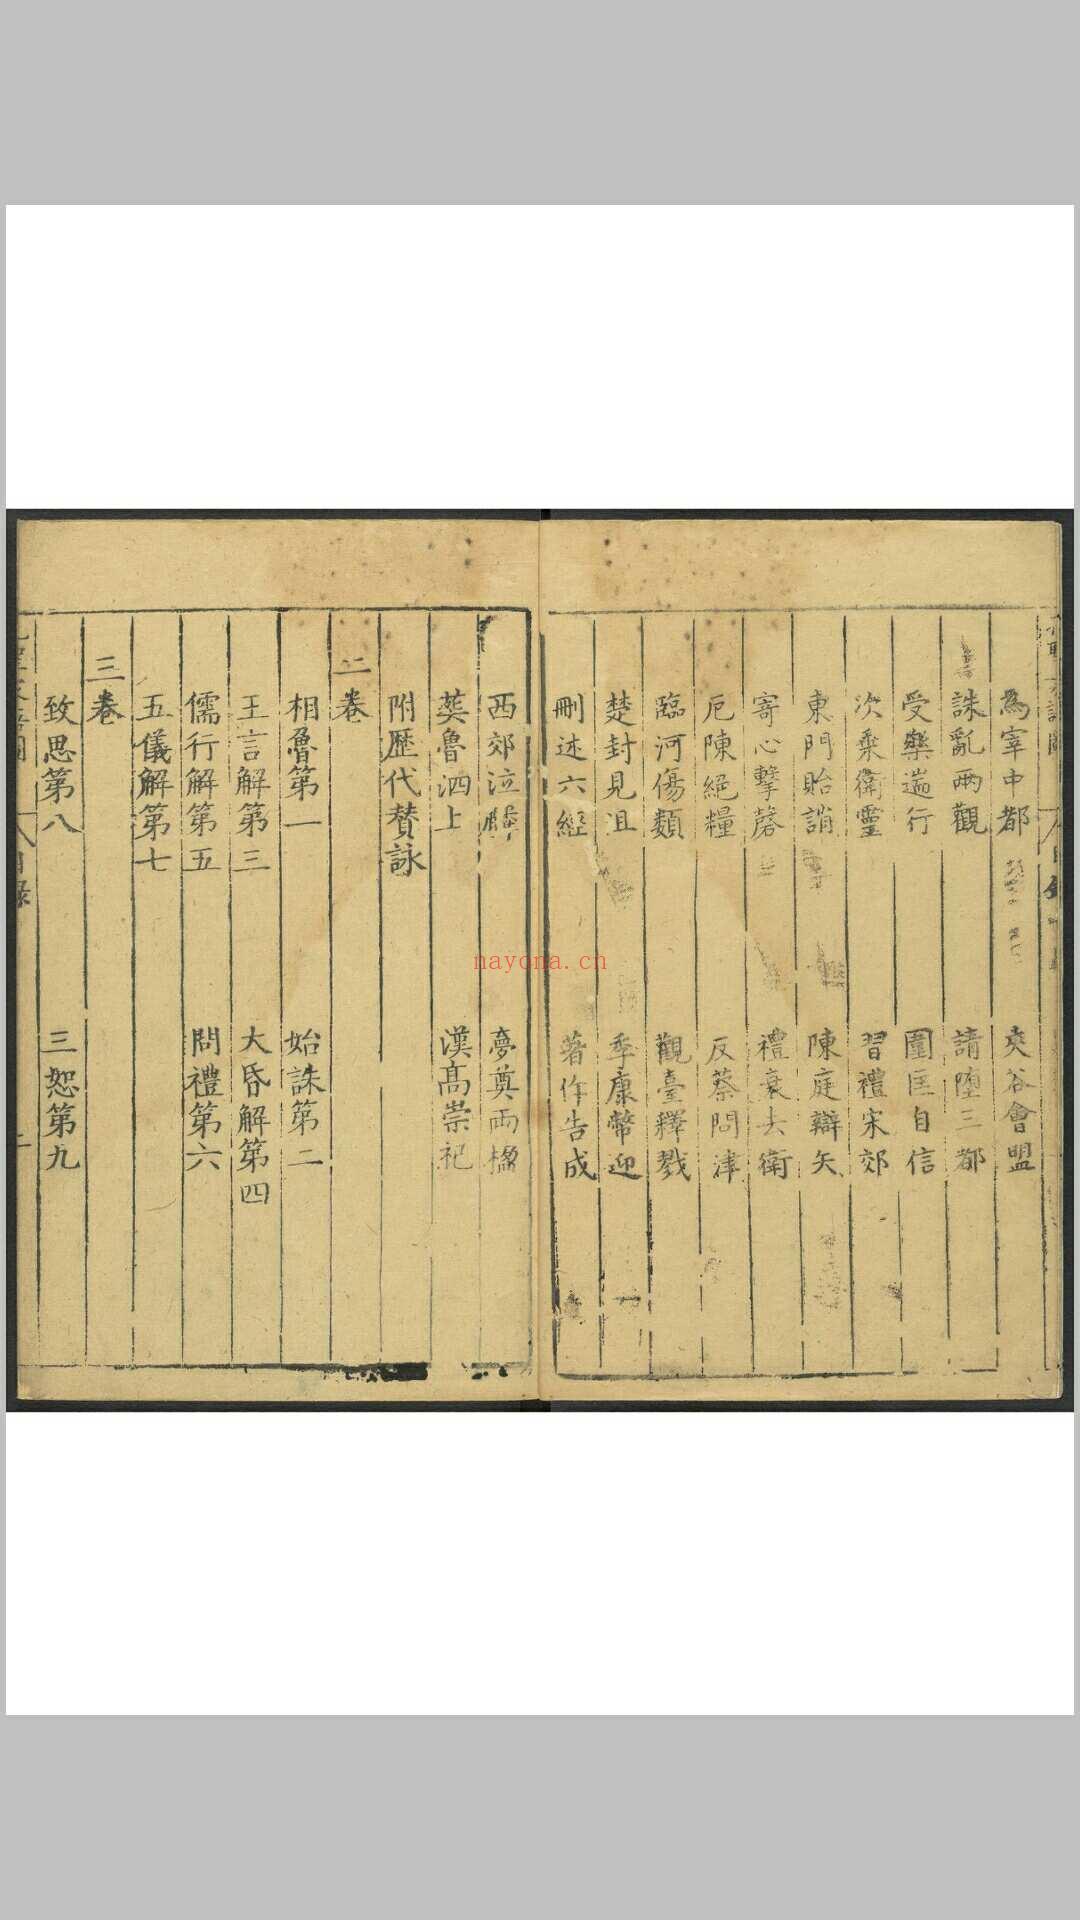 爲宰中都　夾谷會盟
誅亂兩觀　請墮三都
受樂遄行　圍匡自信
次乘衛靈　習禮宋郊
東門貽誚　陳庭辯矢
寄心擊磬　禮衰去衛
厄陳絕糧　反蔡問津
臨河傷類　觀臺釋戮
楚封見沮　季康幣迎
刪述六經　著作告成
西郊泣麟　夢奠兩楹
葬魯泗上　漢高崇祀
附歷代贊詠
二卷
相魯第一　始誅第二
王言解第三　大昏解第四
儒行解第五　問禮第六
五儀解第七
三卷
致思第八　三恕第九
目錄
nayona.cn